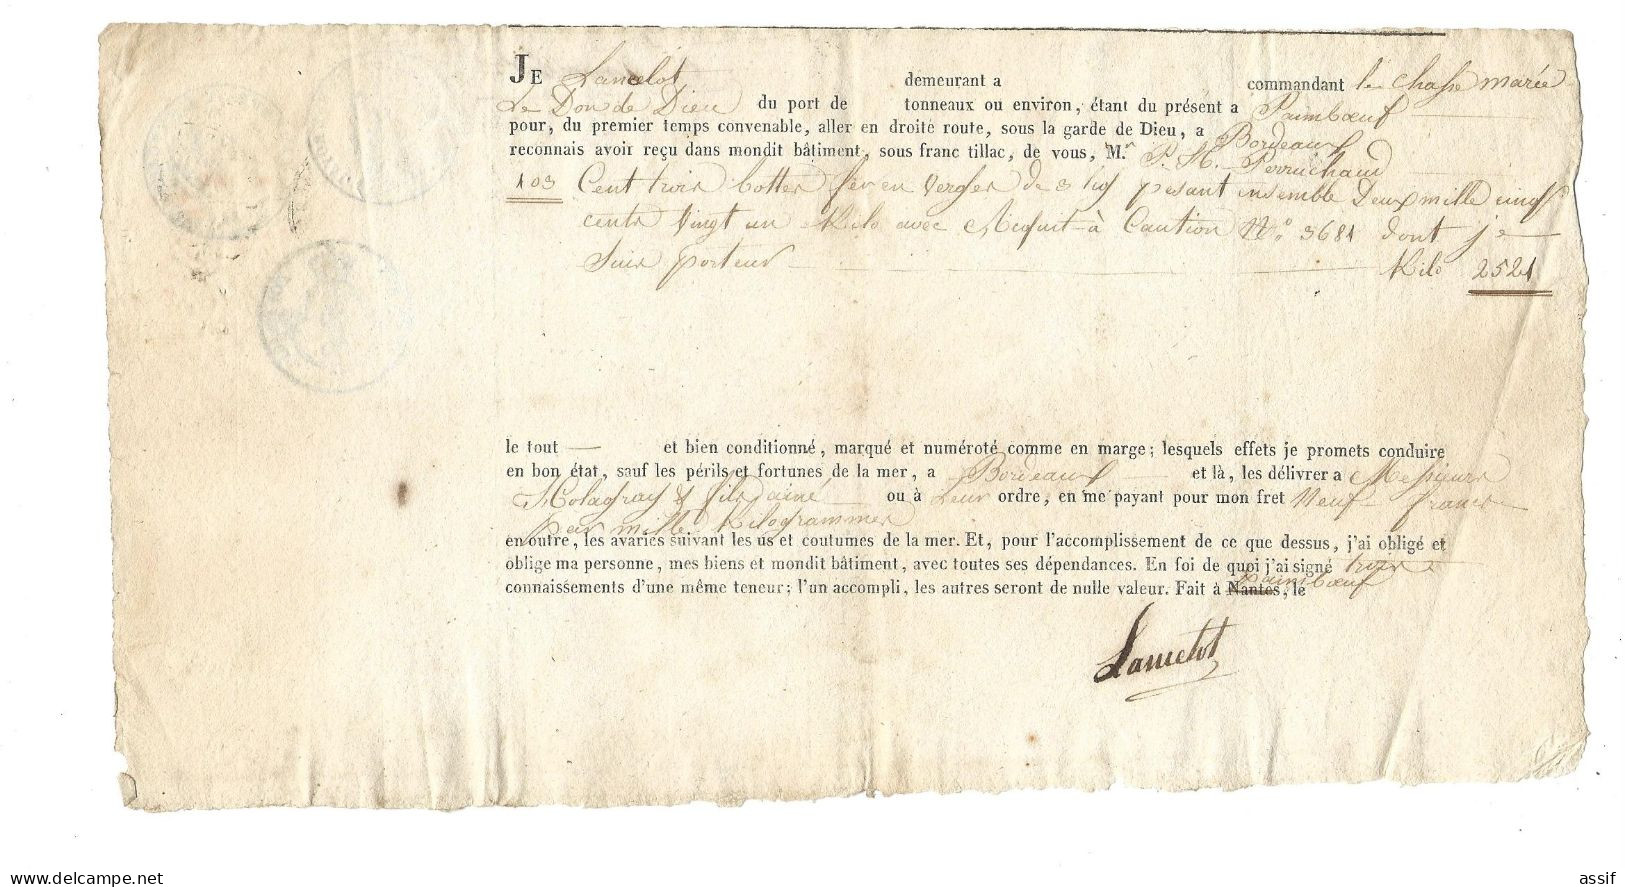 JE Lancelot demeurant a commandant le chasse marée
Le Don de Dieu du port de tonneaux ou environ, étant du présent a Paimbœuf
pour, du premier temps convenable, aller en droite route, sous la garde de Dieu, a Bordeaux
reconnais avoir reçu dans mondit bâtiment, sous franc tillac, de vous, M.r P. H. Perruchaud
103 Cent trois bottes fer en verges de 3 lig pesant ensemble Deux mille cinq
cents vingt un Kilo avec Acquit à Caution No. 3681 dont je
suis porteur Kilo 2521
le tout et bien conditionné, marqué et numéroté comme en marge; lesquels effets je promets conduire
en bon état, sauf les périls et fortunes de la mer, a Bordeaux et là, les délivrer a Messieurs
& fils ainé ou à Leur ordre, en me payant pour mon fret Neuf francs
par mille Kilogrammes
en outre, les avaries suivant les us et coutumes de la mer. Et, pour l'accomplissement de ce que dessus, j'ai obligé et
oblige ma personne, mes biens et mondit bâtiment, avec toutes ses dépendances. En foi de quoi j'ai signé trois
connaissements d'une même teneur; l'un accompli, les autres seront de nulle valeur. Fait à Nantes, le Paimbœuf
Lancelot
www.delcampe.net
assif